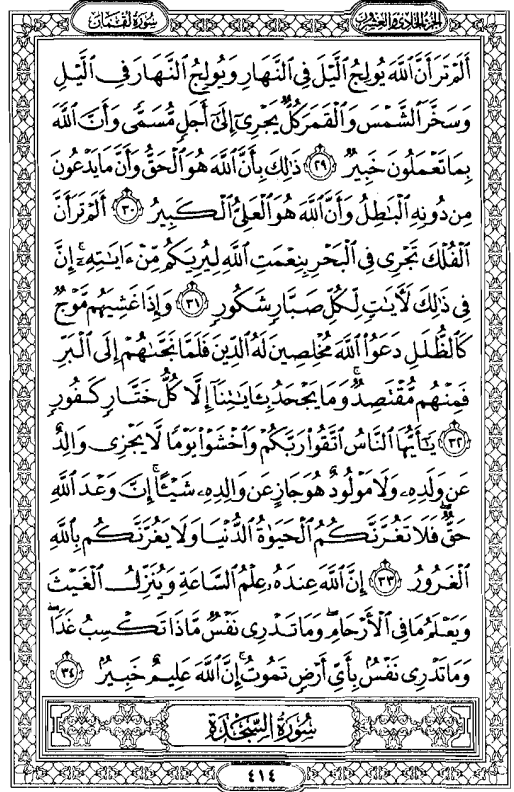 سُورَةُ لُقْمَانَ
الجزء الحادي والعشرون
أَلَمْ تَرَ أَنَّ ٱللَّهَ يُولِجُ ٱلَّيْلَ فِى ٱلنَّهَارِ وَيُولِجُ ٱلنَّهَارَ فِى ٱلَّيْلِ
وَسَخَّرَ ٱلشَّمْسَ وَٱلْقَمَرَ كُلٌّ يَجْرِىٓ إِلَىٰٓ أَجَلٍ مُّسَمًّى وَأَنَّ ٱللَّهَ
بِمَا تَعْمَلُونَ خَبِيرٌ ٢٩ ذَٰلِكَ بِأَنَّ ٱللَّهَ هُوَ ٱلْحَقُّ وَأَنَّ مَا يَدْعُونَ
مِن دُونِهِ ٱلْبَٰطِلُ وَأَنَّ ٱللَّهَ هُوَ ٱلْعَلِىُّ ٱلْكَبِيرُ ٣٠ أَلَمْ تَرَ أَنَّ
ٱلْفُلْكَ تَجْرِى فِى ٱلْبَحْرِ بِنِعْمَتِ ٱللَّهِ لِيُرِيَكُم مِّنْ ءَايَٰتِهِۦٓ ۚ إِنَّ
فِى ذَٰلِكَ لَءَايَٰتٍ لِّكُلِّ صَبَّارٍ شَكُورٍ ٣١ وَإِذَا غَشِيَهُم مَّوْجٌ
كَٱلظُّلَلِ دَعَوُا۟ ٱللَّهَ مُخْلِصِينَ لَهُ ٱلدِّينَ فَلَمَّا نَجَّىٰهُمْ إِلَى ٱلْبَرِّ
فَمِنْهُم مُّقْتَصِدٌ ۚ وَمَا يَجْحَدُ بِـَٔايَٰتِنَآ إِلَّا كُلُّ خَتَّارٍ كَفُورٍ
٣٢ يَٰٓأَيُّهَا ٱلنَّاسُ ٱتَّقُوا۟ رَبَّكُمْ وَٱخْشَوْا۟ يَوْمًا لَّا يَجْزِى وَالِدٌ
عَن وَلَدِهِۦ وَلَا مَوْلُودٌ هُوَ جَازٍ عَن وَالِدِهِۦ شَيْـًٔا ۚ إِنَّ وَعْدَ ٱللَّهِ
حَقٌّ ۖ فَلَا تَغُرَّنَّكُمُ ٱلْحَيَوٰةُ ٱلدُّنْيَا وَلَا يَغُرَّنَّكُم بِٱللَّهِ
ٱلْغَرُورُ ٣٣ إِنَّ ٱللَّهَ عِندَهُۥ عِلْمُ ٱلسَّاعَةِ وَيُنَزِّلُ ٱلْغَيْثَ
وَيَعْلَمُ مَا فِى ٱلْأَرْحَامِ ۖ وَمَا تَدْرِى نَفْسٌ مَّاذَا تَكْسِبُ غَدًا ۖ
وَمَا تَدْرِى نَفْسٌۢ بِأَىِّ أَرْضٍ تَمُوتُ ۚ إِنَّ ٱللَّهَ عَلِيمٌ خَبِيرٌۢ ٣٤
سُورَةُ السَّجْدَةِ
٤١٤